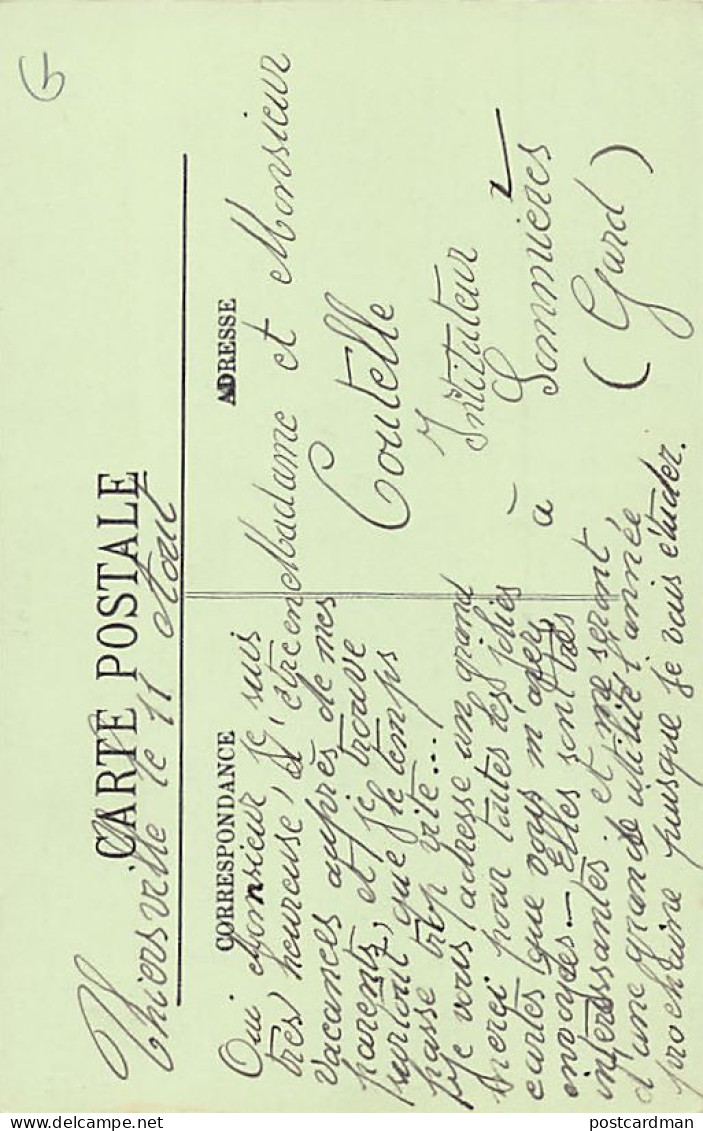 G
CARTE POSTALE
Thiersville le 11 Aout
CORRESPONDANCE
Oui Monsieur je suis
très heureuse, d'être en
vacances auprès de mes
parents, et je trouve
surtout que le temps
passe trop vite...
Je vous adresse un grand
merci pour toutes les jolies
cartes que vous m'avez
envoyées - Elles sont très
interessantes et me seront
d'une grande utilité l'année
prochaine puisque je vais étudier.
ADRESSE
Madame et Monsieur
Coutelle
Instituteur
à Sommieres
(Gard)
postcardman